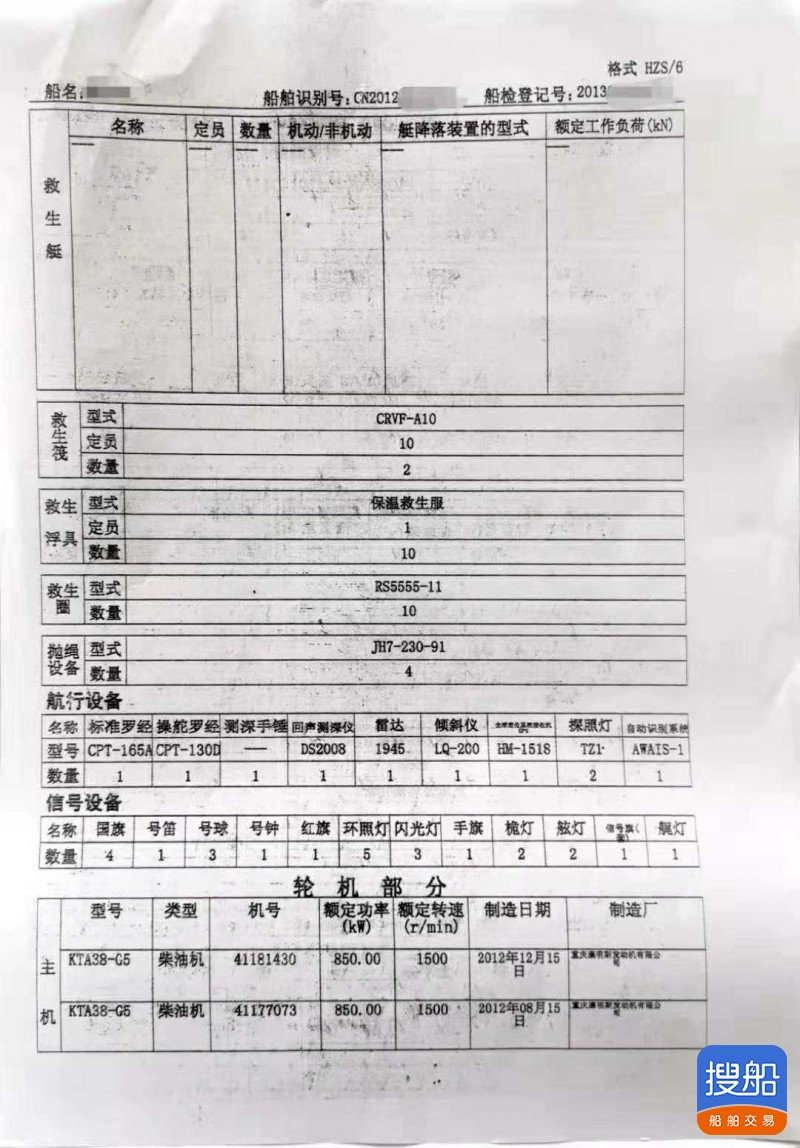 格式 HZS/6
船名: 船舶识别号:CN2012 船检登记号:2013
名称 定员 数量 机动/非机动 艇降落装置的型式 额定工作负荷(kN)
救生艇 — — — — — —
救生筏 型式 CRVF-A10
定员 10
数量 2
救生浮具 型式 保温救生服
定员 1
数量 10
救生圈 型式 RS5555-11
数量 10
抛绳设备 型式 JH7-230-91
数量 4
航行设备
名称 标准罗经 操舵罗经 测深手锤 回声测深仪 雷达 倾斜仪 探照灯 自动识别系统
型号 CPT-165A CPT-130D —— DS2008 1945 LQ-200 HM-1518 TZ1 AWAIS-1
数量 1 1 1 1 1 1 1 2 1
信号设备
名称 国旗 号笛 号球 号钟 红旗 环照灯 闪光灯 手旗 桅灯 舷灯 信号旗(套) 艉灯
数量 4 1 3 1 1 5 3 1 2 2 1 1
轮机部分
型号 类型 机号 额定功率(kW) 额定转速(r/min) 制造日期 制造厂
主机
KTA38-G5 柴油机 41181430 850.00 1500 2012年12月15日 重庆康明斯发动机有限公司
KTA38-G5 柴油机 41177073 850.00 1500 2012年08月15日 重庆康明斯发动机有限公司
搜船
船舶交易